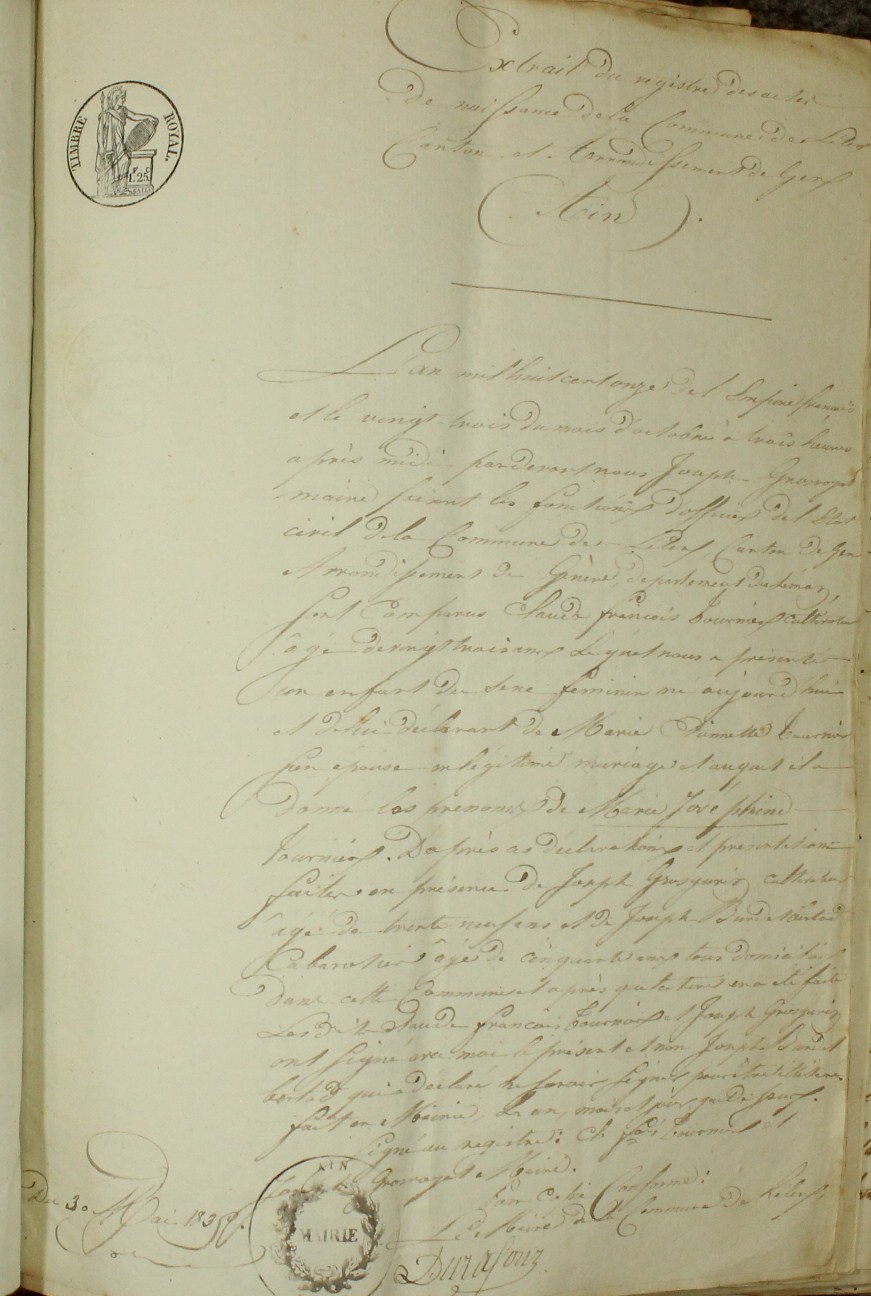 TIMBRE ROYAL.
1.F25.C
Extrait du registre des actes
de naissance de la Commune de Lelex
Canton et Arrondissement de Gex
(Ain).
L'an mil huit cent onze de l'Empire français
et le vingt-trois du mois d'octobre à trois heures
après midi pardevant nous Joseph
maire faisant les fonctions d'officier de l'Etat
civil de la Commune de Lelex Canton de Gex
Arrondissement de Genève, département du Léman,
sont comparus Claude François Tournier cultivateur
âgé de vingt trois ans Lequel nous a présenté
un enfant du sexe feminin né aujourd'hui
et de lui déclarant de Marie Tournier
son épouse en légitime mariage et auquel il a
donné les prenoms de Marie Joséphine
Tournier. D'après ces déclarations et présentations
faites en présence de Joseph Grosgurin cultivateur
âgé de trente neuf ans et de Joseph
Cabaretier âgé de cinquante ans tous domiciliés
dans cette Commune et après que lecture en a été faite
Les dits Claude François Tournier et Joseph Grosgurin
ont signé avec moi le présent et non Joseph
qui a déclaré ne savoir signer
fait en Mairie, an, mois et jour que dessus.
Signé au registre: Cl. fçois Tournier et
Maire.
Pour copie Conforme:
Le Maire de la Commune de Lelex,
Du 30 Mai
AIN
MAIRIE
Durafour